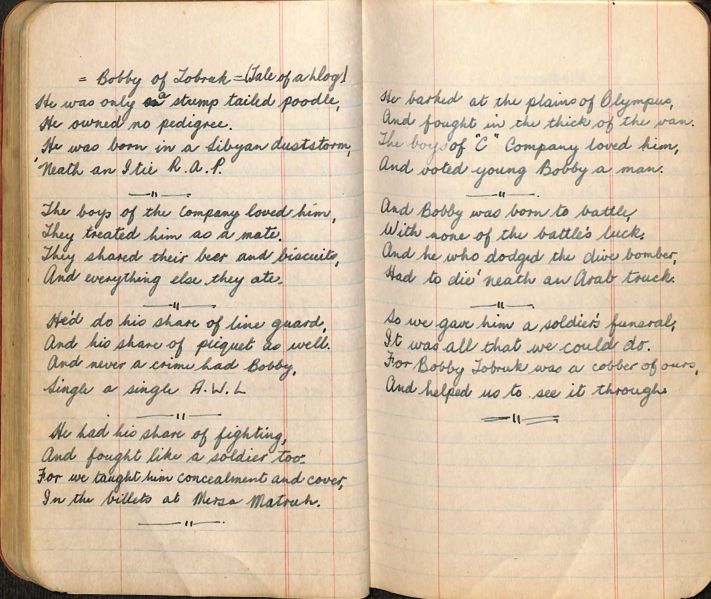 = Bobby of Tobruk = (Tale of a dog)
He was only a stump tailed poodle,
He owned no pedigree.
He was born in a Libyan duststorm,
'Neath an Itie R.A.P.
—"—
The boys of the Company loved him,
They treated him as a mate.
They shared their beer and biscuits,
And everything else they ate.
—"—
He'd do his share of line guard,
And his share of picquet as well.
And never a crime had Bobby,
Single a single A.W.L
—"—
He had his share of fighting,
And fought like a soldier too.
For we taught him concealment and cover,
In the billets at Mersa Matruh.
—"—
He barked at the plains of Olympus,
And fought in the thick of the van.
The boys of "C" Company loved him,
And voted young Bobby a man.
—"—
And Bobby was born to battle,
With none of the battle's luck.
And he who dodged the dive bomber,
Had to die 'neath an Arab truck.
—"—
So we gave him a soldier's funeral,
It was all that we could do.
For Bobby Tobruk was a cobber of ours,
And helped us to see it through.
—"—